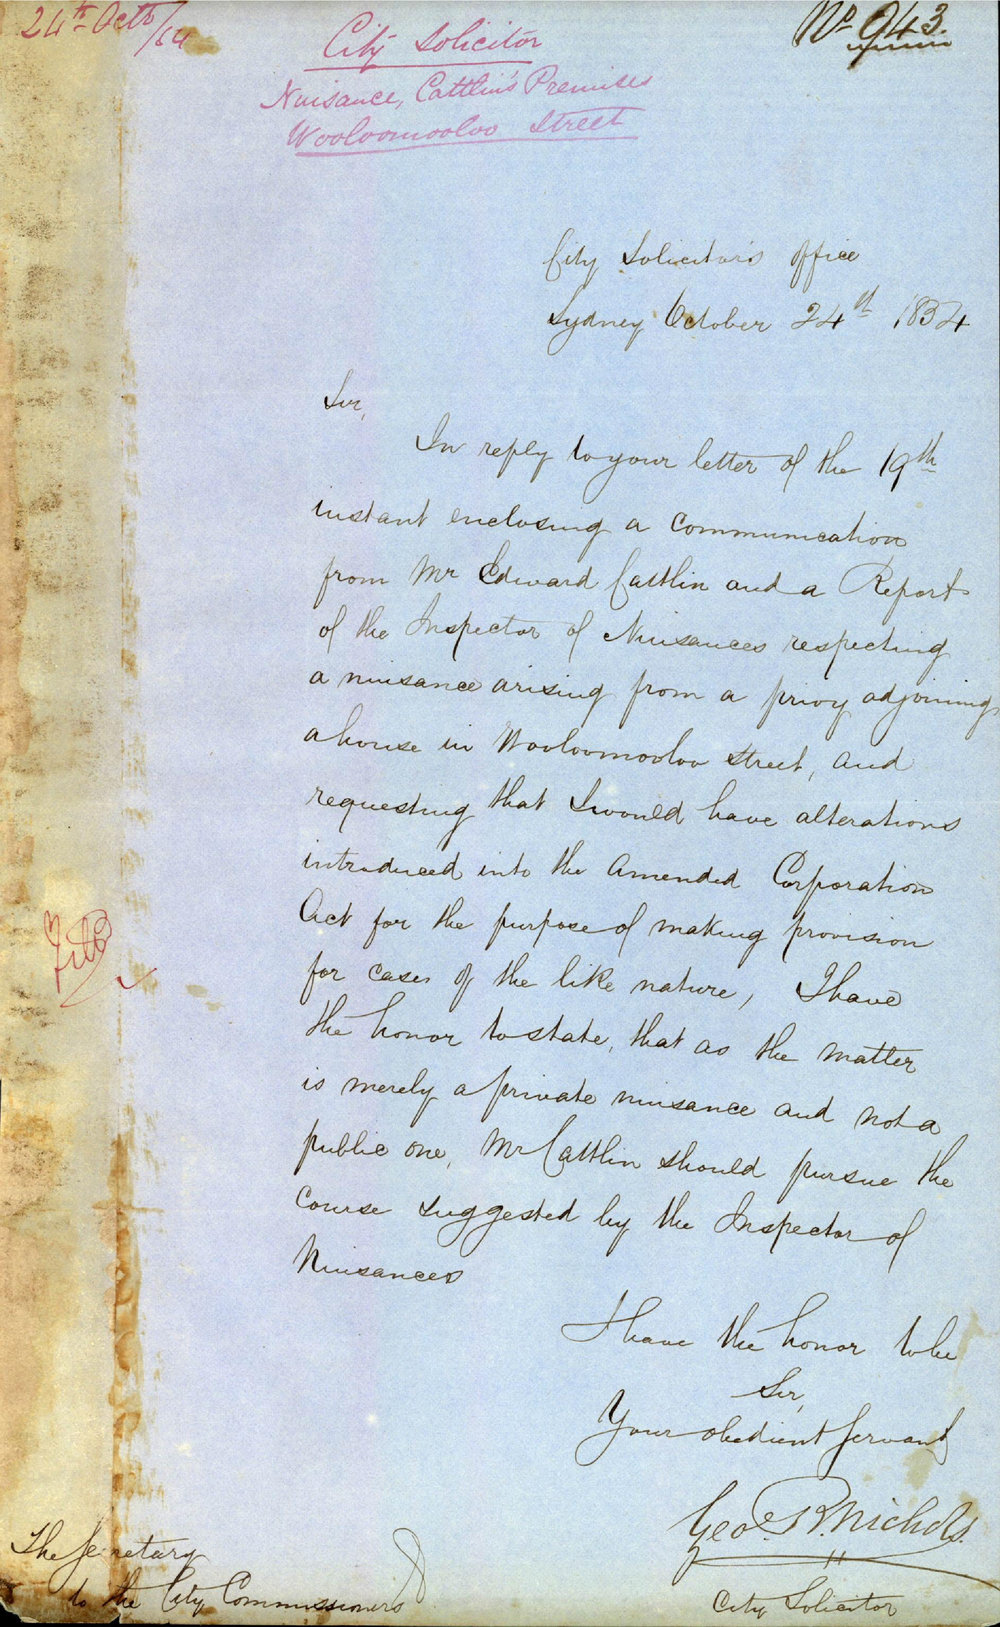 24th Octr /54
No 943.
City Solicitor
Nuisance, Cattlin's Premises
Wooloomooloo Street
City Solicitor's Office
Sydney October 24th 1854
Sir,
In reply to your letter of the 19th
instant enclosing a communication
from Mr Edward Cattlin and a Report
of the Inspector of Nuisances respecting
a nuisance arising from a privy adjoining
a house in Wooloomooloo Street, and
requesting that I would have alterations
introduced into the Amended Corporation
Act for the purpose of making provision
for cases of the like nature, I have
the honor to state, that as the matter
is merely a private nuisance and not a
public one, Mr Cattlin should pursue the
course suggested by the Inspector of
Nuisances
I have the honor to be
Sir,
Your obedient Servant
Geo. R. Nichols.
City Solicitor
The Secretary
to the City Commissioners